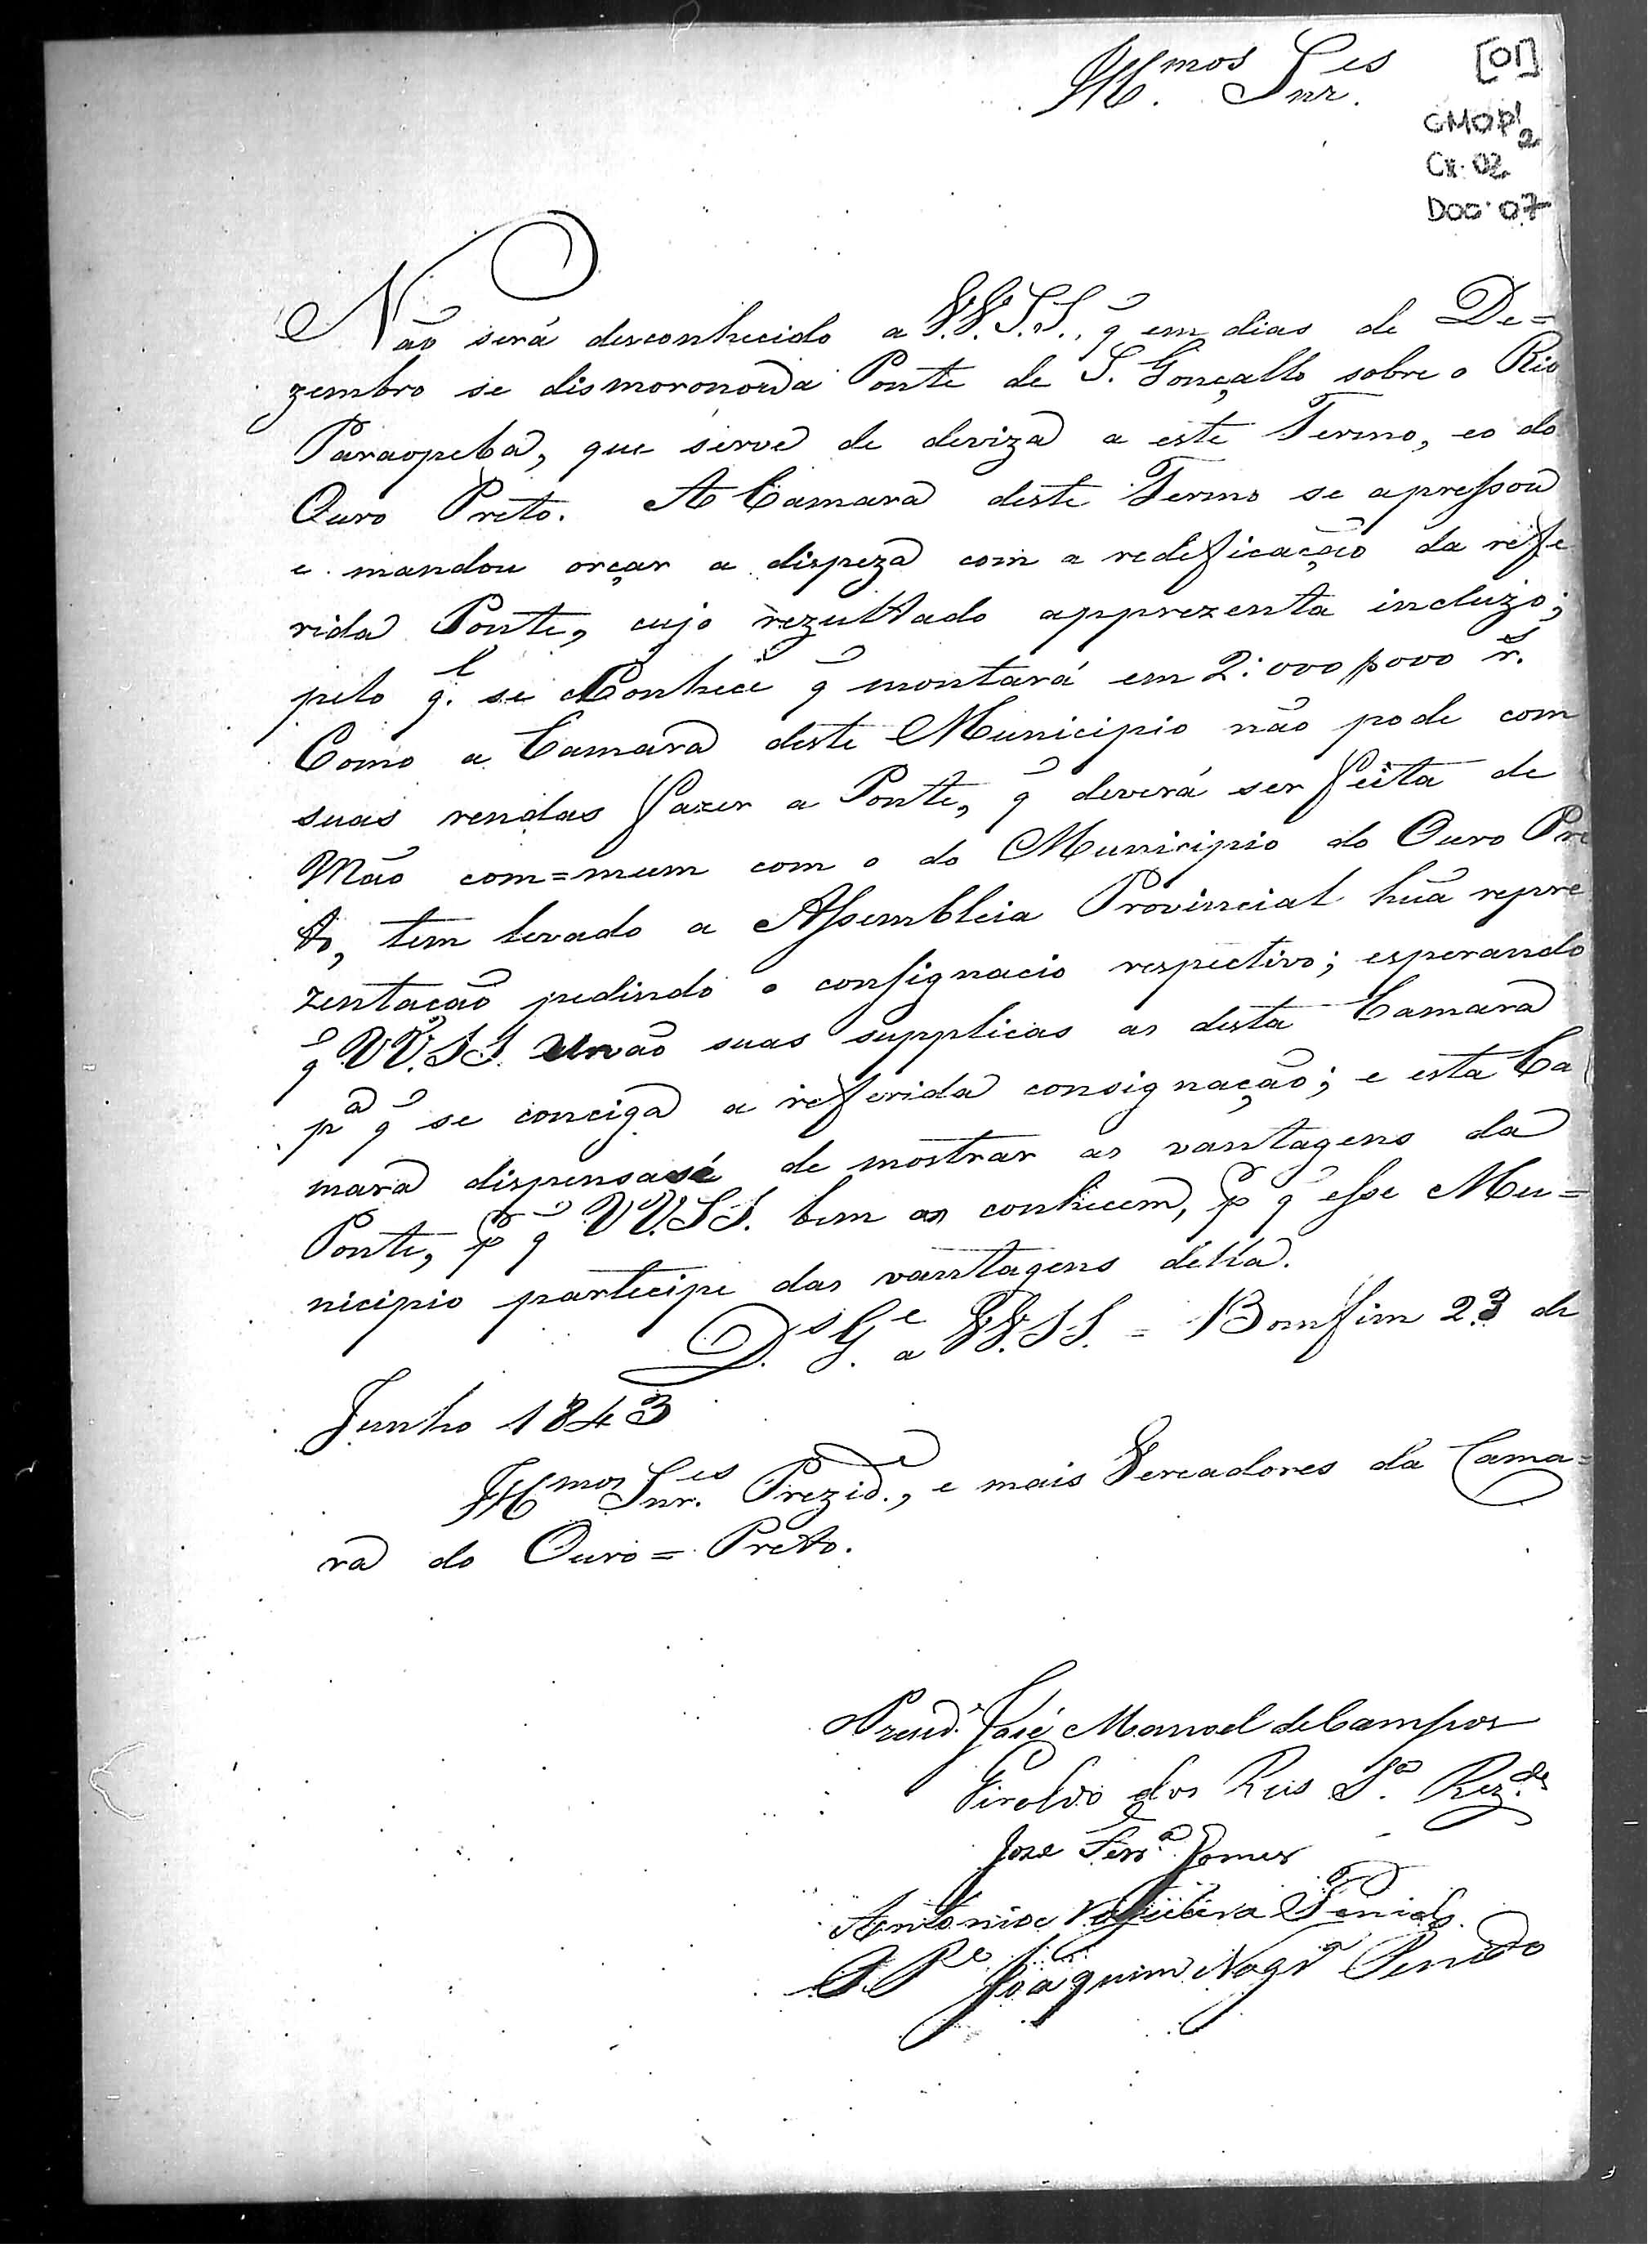 Ill.mos Snr.es
[01]
CMOP!2
Cx. 02
DOC. 07
Não será desconhecido a V.V.S.S., q̃ em dias de De=
zembro se dismoronou a Ponte de S. Gonçallo sobre o Rio
Paraopeba, que serve de deviza a este Termo, eo do
Ouro Preto. A Camara deste Termo se apressou
e mandou orçar a dispeza com a redeficação da refe
rida Ponte, cujo rezultado apprezenta incluzo;
pelo q.l se Conhece q̃ montará em 2:000$000 r.s
Como a Camara deste Municipio não pode com
suas rendas fazer a Ponte, q̃ deverá ser feita de
Mão com=mum com o do Municipio do Ouro Pre
to, tem levado a Assembleia Provincial hũa repre
zentação pedindo o consignacio respectivo; esperando
q̃ V.V.S.S. unão suas supplicas as desta Camara
p.a q̃ se conciga a referida consignação; e esta Ca
mara dispensasé de mostrar as vantagens da
Ponte, p̃ q̃ V.V.S.S. bem as conhecem, p̃ q̃ esse Mu=
nicipio partecipe das vantagens della.
D.s G.e a V.V.S.S. = Bomfim 23 de
Junho 1843
Ill.mos Snr.es Prezid.e, e mais Vereadores da Cama=
ra do Ouro=Preto.
Prezid.e José Manoel de Campos
Giraldo dos Reis S.a Rez.de
Jose Ferr.a Gomes
Antonio Penido
O P.e Joaquim Nogr.a Penido